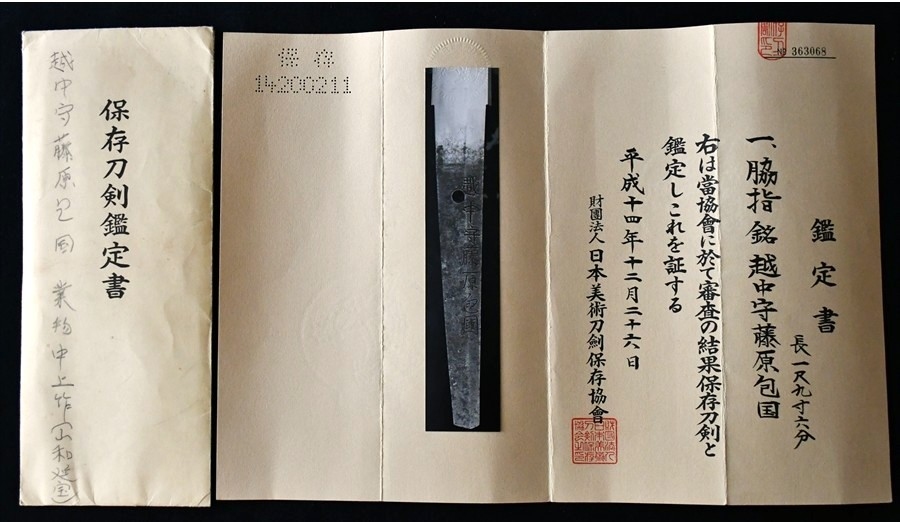 鑑定書
一、脇指 銘 越中守藤原包国
長一尺九寸六分
右は當協會に於て審査の結果保存刀剣と
鑑定しこれを証する
平成十四年十二月二十六日
財團法人日本美術刀剣保存協會
№ 363068
保存
14200211
越中守藤原包國
保存刀剣鑑定書
越中守藤原包国 業物中上作